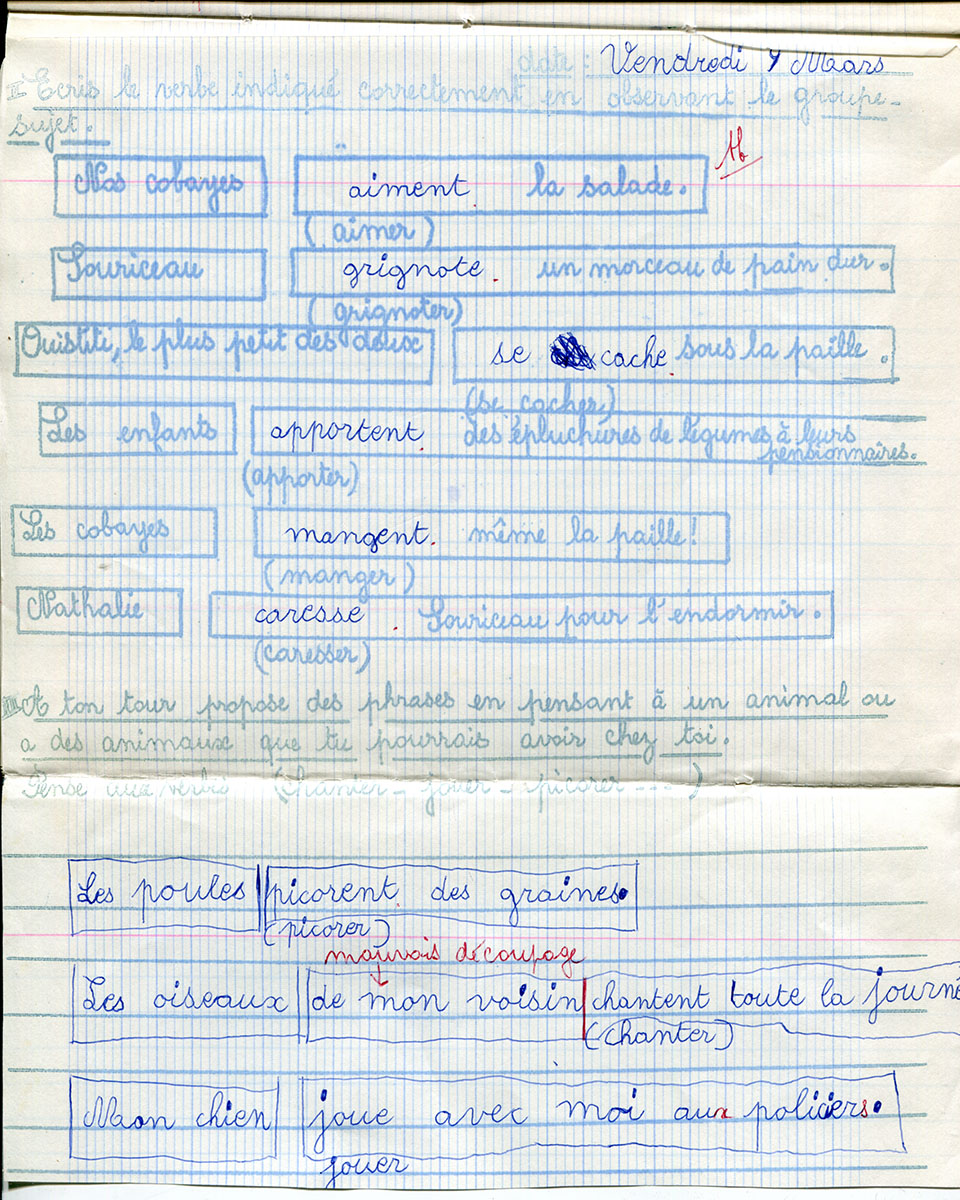 date : Vendredi 7 Mars
II_ Ecris le verbe indiqué correctement en observant le groupe-
sujet.
Tb
Nos cobayes aiment la salade.
( aimer )
Souriceau grignote un morceau de pain dur.
( grignoter)
Ouistiti, le plus petit des deux se cache sous la paille.
(se cacher)
Les enfants apportent des épluchures de légumes à leurs
pensionnaires.
(apporter)
Les cobayes mangent. même la paille!
(manger)
Nathalie caresse Souriceau pour l'endormir.
(caresser)
III A ton tour propose des phrases en pensant à un animal ou
a des animaux que tu pourrais avoir chez toi.
Pense aux verbes (chanter - jouer - picorer --- )
Les poules picorent des graines.
(picorer)
mauvais découpage
Les oiseaux de mon voisin chantent toute la journé
(chanter)
Mon chien joue avec moi aux policiers.
jouer